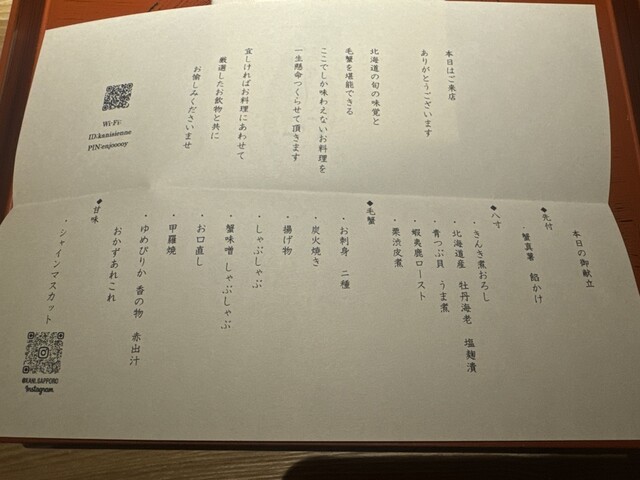 本日はご来店
ありがとうございます
北海道の旬の味覚と
毛蟹を堪能できる
ここでしか味わえないお料理を
一生懸命つくらせて頂きます
宜しければお料理にあわせて
厳選したお飲物と共に
お愉しみくださいませ
Wi-Fi:
ID:kanisienne
PIN:enjooooy
本日の御献立
◆先付
・蟹真薯 餡かけ
◆八寸
・きんき煮おろし
・北海道産 牡丹海老 塩麹漬
・青つぶ貝 うま煮
・蝦夷鹿ロースト
・栗渋皮煮
◆毛蟹
・お刺身 二種
・炭火焼き
・揚げ物
・しゃぶしゃぶ
・蟹味噌 しゃぶしゃぶ
・お口直し
・甲羅焼
・ゆめぴりか 香の物 赤出汁
おかずあれこれ
◆甘味
・シャインマスカット
@KANI.SAPPORO
Instagram